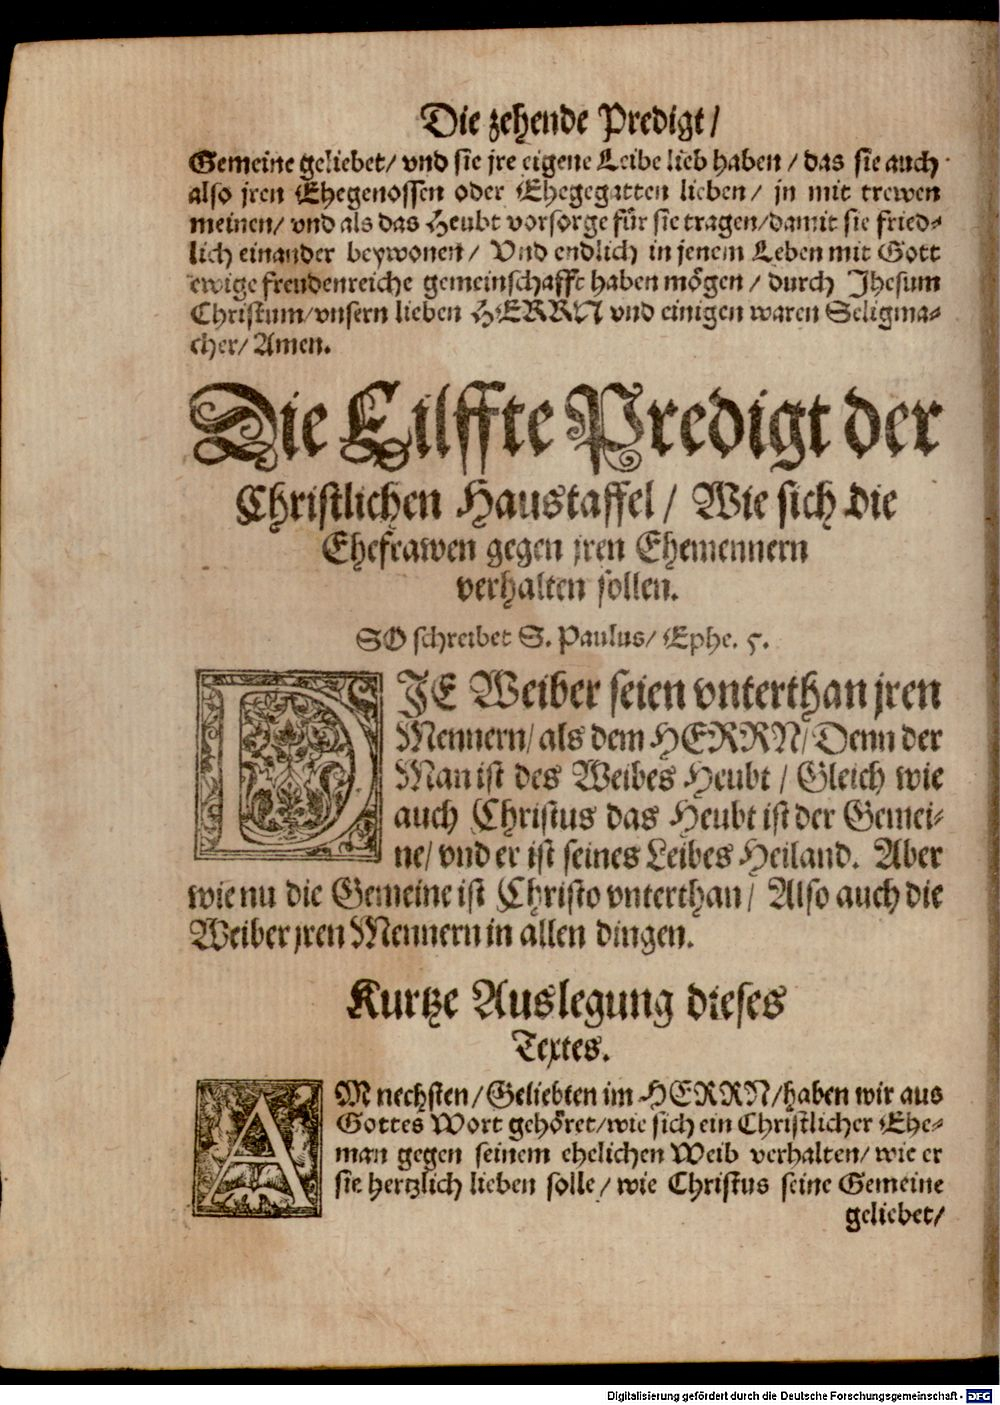 Die zehende Predigt/
Gemeine geliebet/ vnd sie jre eigene Leibe lieb haben / das sie auch
also jren Ehegenossen oder Ehegegatten lieben/ jn mit trewen
meinen/ vnd als das Heubt vorsorge für sie tragen/damit sie fried-
lich einander beywonen/ Vnd endlich in jenem Leben mit Gott
ewige freudenreiche gemeinschafft haben mögen / durch Jhesum
Christum/vnsern lieben HERRN vnd einigen waren Seligma-
cher/ Amen.
Die Eilffte Predigt der
Christlichen Haustaffel/ Wie sich die
Ehefrawen gegen jren Ehemennern
verhalten sollen.
SO schreibet S. Paulus/ Ephe. 5.
DIE Weiber seien vnterthan jren
Mennern/ als dem HERRN/ Denn der
Man ist des Weibes Heubt / Gleich wie
auch Christus das Heubt ist der Gemei-
ne/ vnd er ist seines Leibes Heiland. Aber
wie nu die Gemeine ist Christo vnterthan/ Also auch die
Weiber jren Mennern in allen dingen.
Kurtze Auslegung dieses
Textes.
AM nechsten/ Geliebten im HERRN/haben wir aus
Gottes Wort gehöret/wie sich ein Christlicher Ehe-
man gegen seinem ehelichen Weib verhalten/ wie er
sie hertzlich lieben solle/ wie Christus seine Gemeine
geliebet/
Digitalisierung gefördert durch die Deutsche Forschungsgemeinschaft - DFG